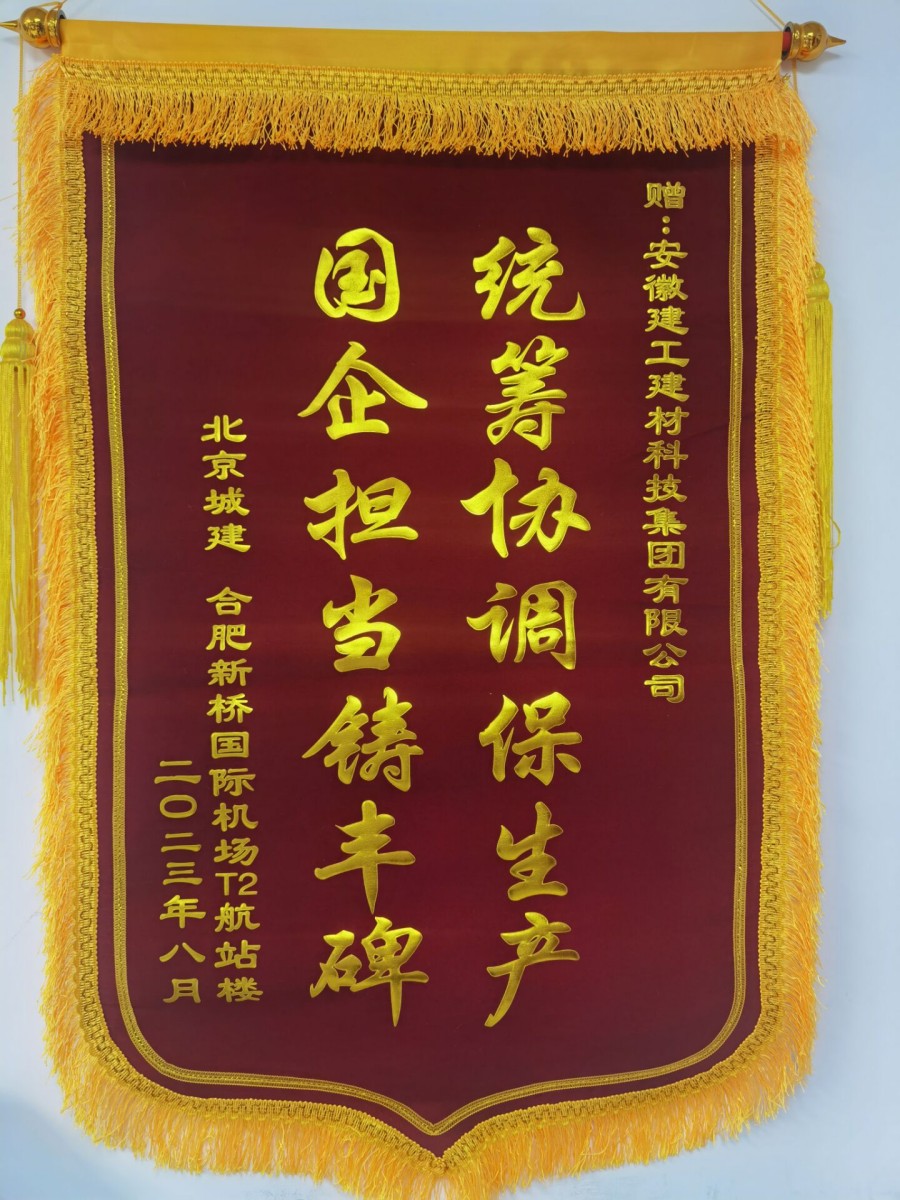 赠：安徽建工建材科技集团有限公司
统筹协调保生产
国企担当铸丰碑
北京城建 合肥新桥国际机场T2航站楼
二〇二三年八月